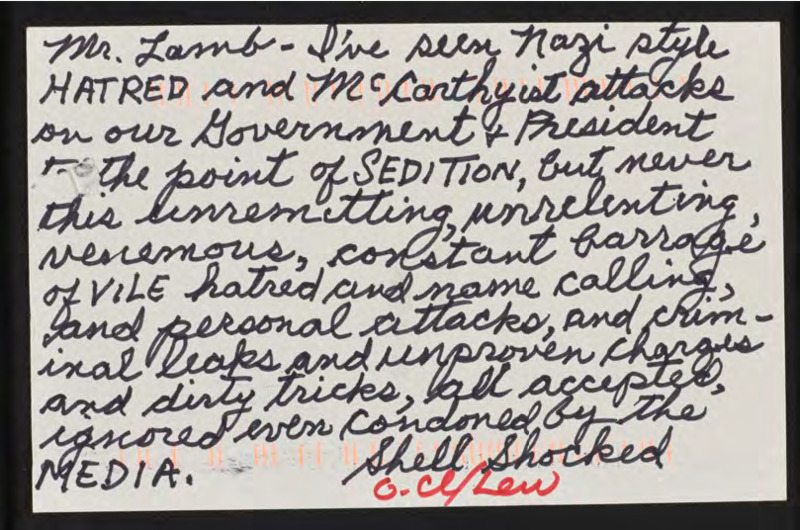 Mr. Lamb - I've seen Nazi style
HATRED and McCarthyist attacks
on our Government & President
to the point of SEDITION, but never
this unremitting, unrelenting,
venemous, constant barrage
of VILE hatred and name calling,
and personal attacks, and crim-
inal leaks and unproven charges
and dirty tricks, all accepted,
ignored even condoned by the
MEDIA. Shell Shocked